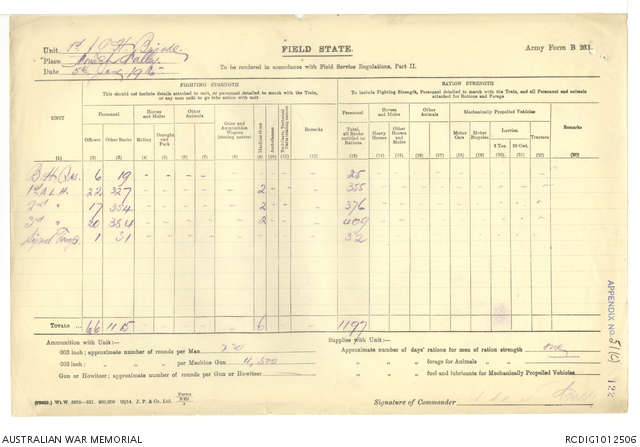 Unit 1st L H Brigade
FIELD STATE.
Army Form B 231.
Place Monash Valley
To be rendered in accordance with Field Service Regulations, Part II.
Date 5th June 1915
FIGHTING STRENGTH
RATION STRENGTH
This should not include details attached to unit, or personnel detailed to march with the Train, or any men unfit to go into action with unit
To include Fighting Strength, Personnel detailed to march with the Train, and all Personnel and animals attached for Rations and Forage
UNIT Personnel Horses and Mules Other Animals Guns and Ammunition Wagons (stating nature) Machine Guns Remarks Personnel Horses and Mules Other Animals Mechanically Propelled Vehicles Remarks
Officers Other Ranks Riding Draught and Pack Total, all Ranks entitled to Rations Heavy Horses Other Horses and Mules Motor Cars Motor Bicycles Lorries Tractors
3 Ton 30 Cwt.
(1) (2) (3) (4) (5) (6) (7) (8) (9) (10) (11) (12) (13) (14) (15) (16) (17) (18) (19) (20) (21) (22) (23)
B. H. Qrs. 6 19 - 25
1st A.L.H. 22 327 - 2 - 355
2nd " 17 354 - 2 - 376
3rd " 20 384 - 2 - 409
Signal Troop 1 31 - 32
TOTALS 66 1115 - 6 - 1197
Ammunition with Unit :—
Supplies with Unit :—
·303 inch; approximate number of rounds per Man 220
Approximate number of days' rations for men of ration strength
·303 inch; " " " per Machine Gun 4,500
" " forage for Animals
Gun or Howitzer; approximate number of rounds per Gun or Howitzer
" " fuel and lubricants for Mechanically Propelled Vehicles
Signature of Commander
APPENDIX NO. 51(c)
122
AUSTRALIAN WAR MEMORIAL
RCDIG1012506